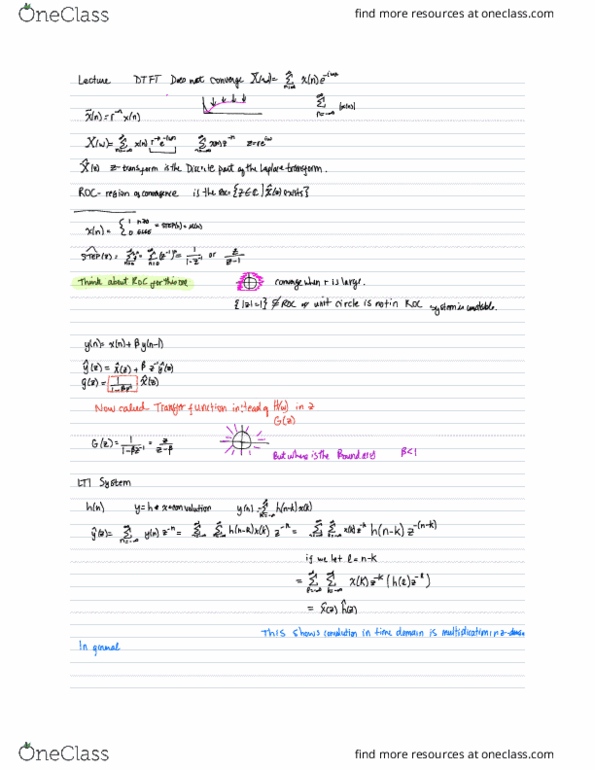 OneClass
find more resources at oneclass.com
Lecture DTFT Does not converge X(ω) = Σ x(n) e^-iωn
Σ |x(n)|
n=-∞
x̃(n) = r^-n x(n)
X(ω) = Σ x(n) r^-n e^-iωn Σ x(n) z^-n z = re^iω
X̂(z) z-transform is the Discrete part of the Laplace transform.
ROC - region of convergence is the {z∈C | X̂(z) exists}
x(n) = { 1 n≥0 = STEP(n) = u(n)
0 else
STEP(z) = Σ z^-n = Σ (z^-1)^n = 1/(1-z^-1) or z/(z-1)
Think about ROC for this one converge when r is large.
{|z|=1} ⊄ ROC ⇒ unit circle is not in ROC system is unstable.
y(n) = x(n) + β y(n-1)
ŷ(z) = x̂(z) + β z^-1 ŷ(z)
ŷ(z) = 1/(1-βz^-1) x̂(z)
Now called Transfer function instead of H(ω) in z
G(z)
G(z) = 1/(1-βz^-1) = z/(z-β)
But where is the β<1
LTI System
h(n) y = h * x convolution y(n) = Σ h(n-k) x(k)
ŷ(z) = Σ y(n) z^-n = Σ Σ h(n-k) x(k) z^-n = Σ Σ x(k) z^-k h(n-k) z^-(n-k)
if we let l = n-k
= Σ Σ x(k) z^-k (h(l) z^-l)
= x̂(z) ĥ(z)
This shows convolution in time domain is multiplication in z-domain
In general
OneClass
find more resources at oneclass.com